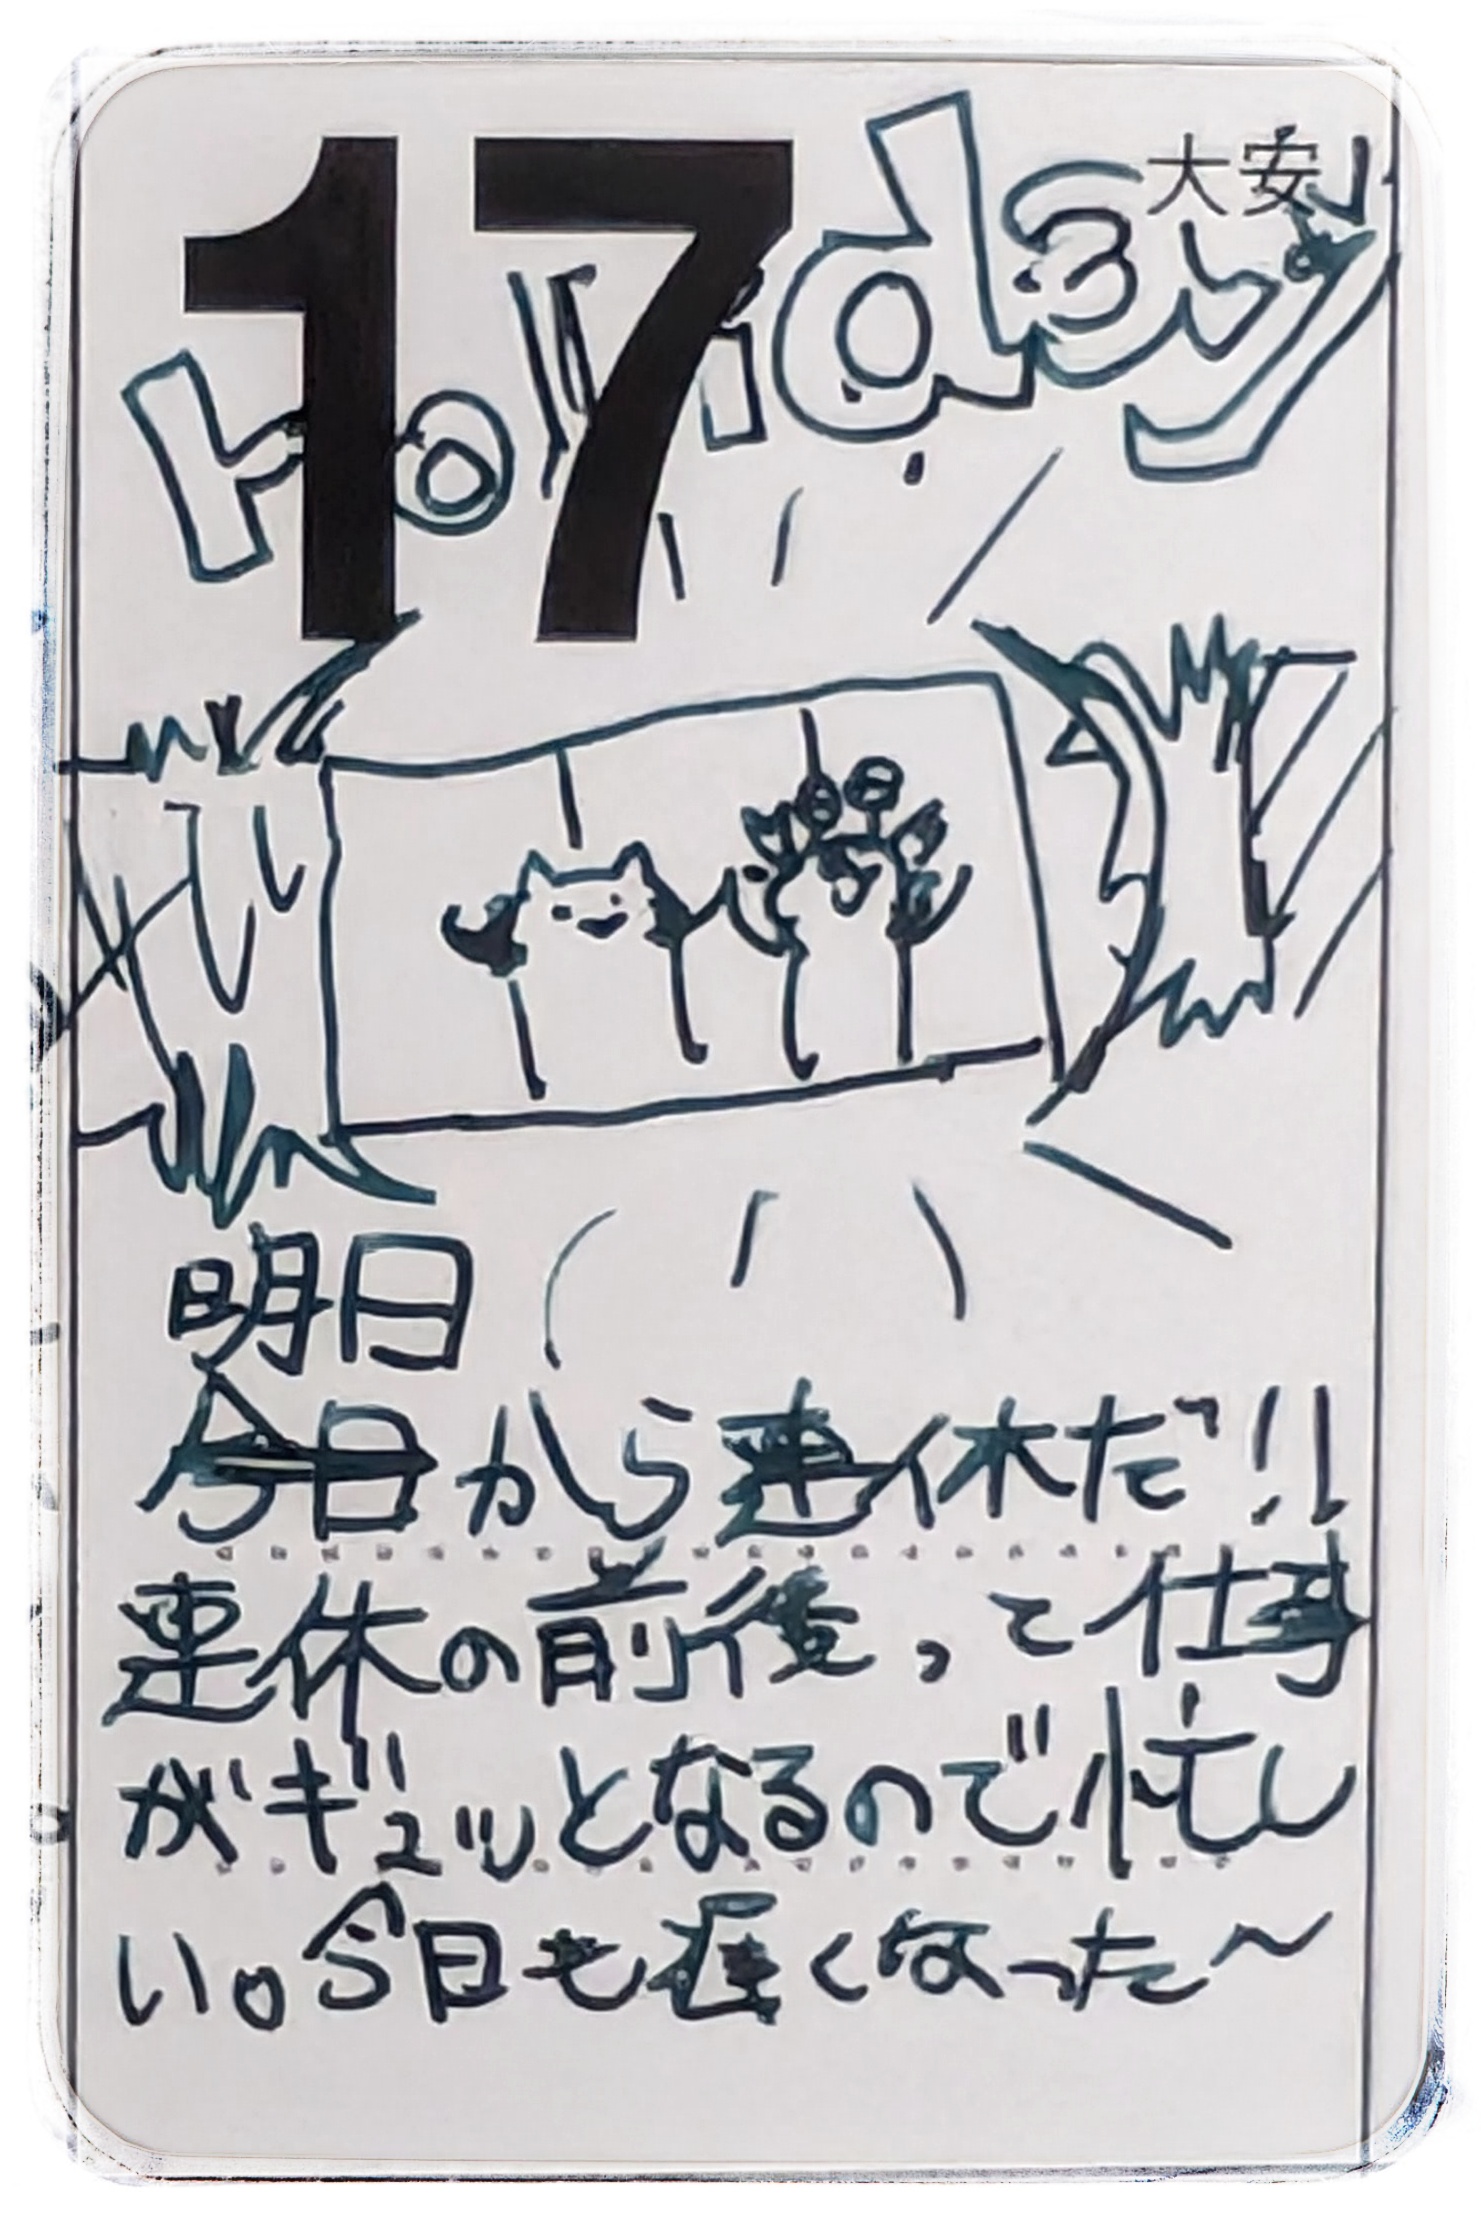 17
大安
Holiday
明日
今日から連休だ!!
連休の前後って仕事
がギュッとなるので忙し
い。今日も遅くなった~